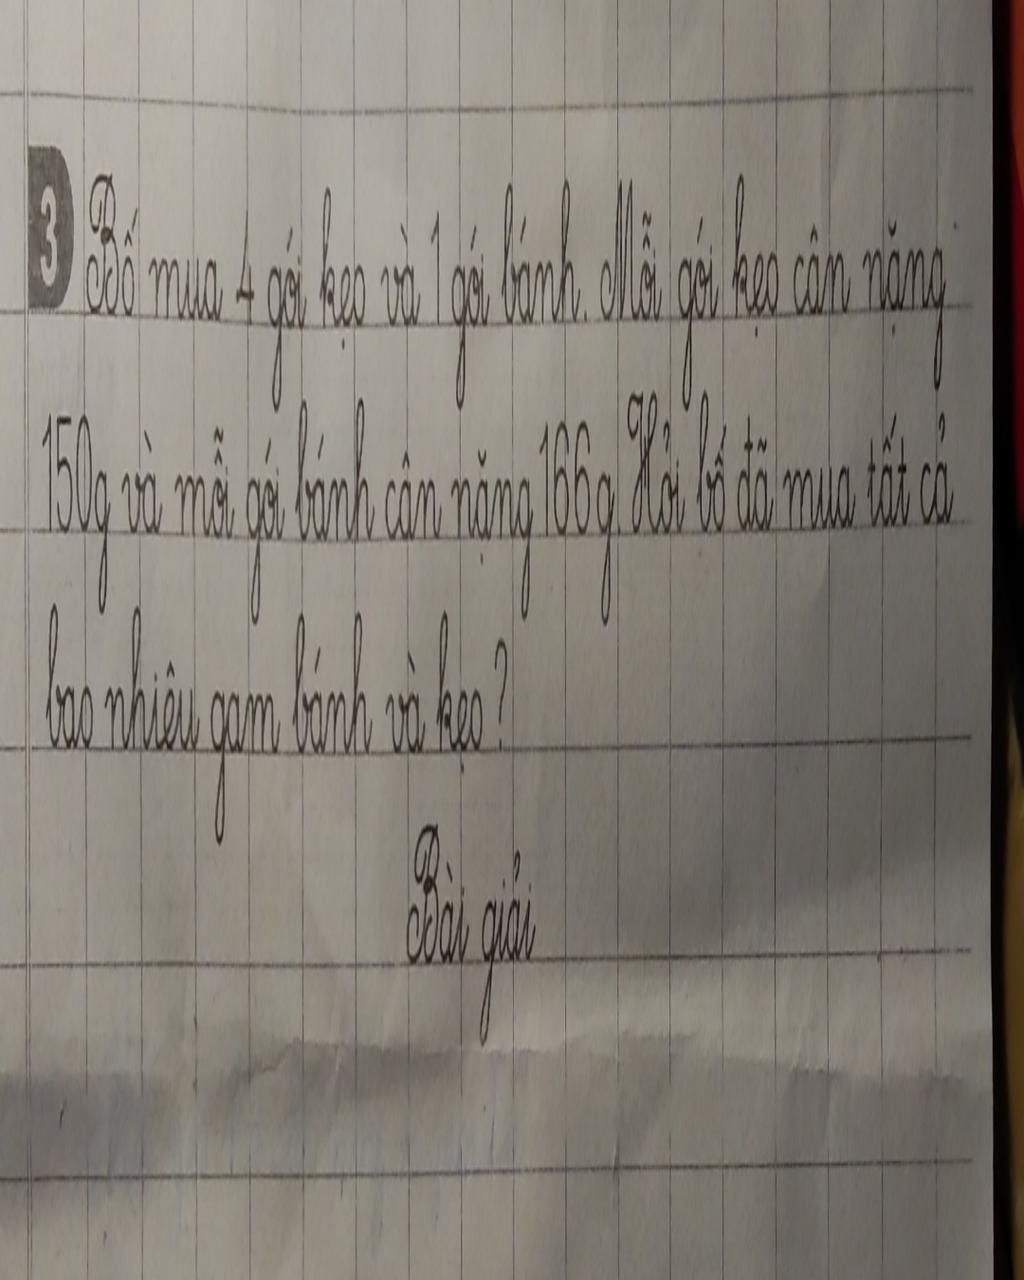 3 Bố mua 4 gói kẹo và 1 gói bánh. Mỗi gói kẹo cân nặng
150g và mỗi gói bánh cân nặng 166g. Hỏi bố đã mua tất cả
bao nhiêu gam bánh và kẹo?
Bài giải